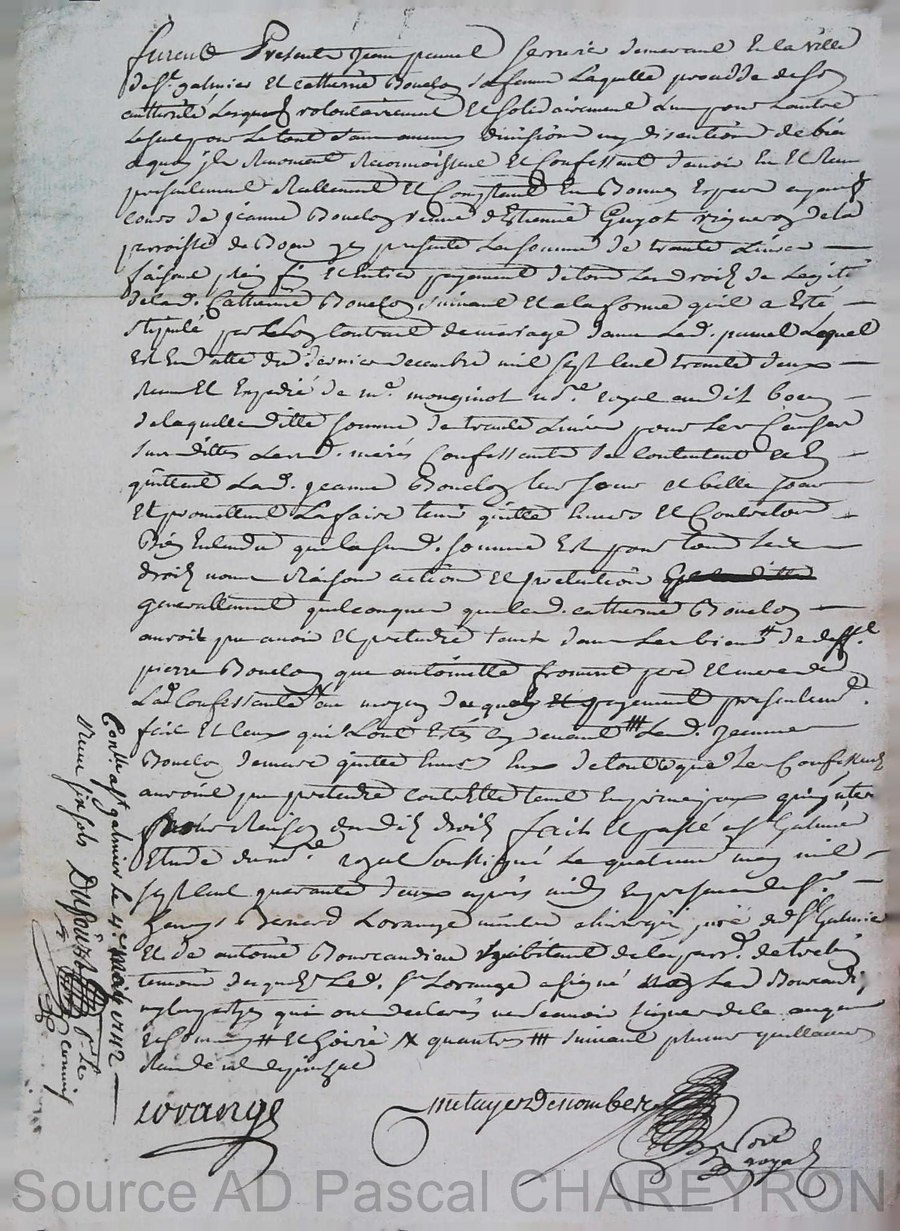 furent Presents Jean pauzel Serrurier demeurant En la ville
de St. galmier Et catherine Bouclon sa femme Laquelle procedde de son
authorité Lesquels volontairement Et solidairement L'un pour Lautre
Le seul pour Le tout sans aucune division ny discution de bien
a quoy ils Renoncent Reconnoissent Et Confessent d'avoir Eu Et Receu
presentement Reallement Et Comptant En Bonnes Especes ayant
cours de jeanne Bouclon veuve d'Estienne Guyot vigneron de la
parroisse de Boen presente La somme de trante Livres
faisant plein Et Entier payement de tous Les droits de Legitime
de lad. Catherine Bouclon suivant Et a la forme quil a Esté
stipulé par Le Contract de mariage dans Led. Lequel
Est En datte du dernier decembre mil sept cent trante deux
Receu Et Expedié de me. monginot nre. royal audit boen
de laquelle ditte somme de trante Livres pour Les Causes
susdittes Lesd. mariés Confessants se contentent Et En
quittent Lad. jeanne Bouclon leur soeur Et belle soeur
Et promettent La faire tenir quitte Envers Et Contre tous
Bien Entendu que lasusd. somme Est pour tous Les
droits noms Raisons actions Et pretentions
generallement quelconques que lad. catherine Bouclon
auroit pu avoir Et pretendre tant dans Les biens de deff.
pierre Bouclon que antoinette froment pere Et mere de
Lad. Confessante au moyen duquel payement presentement
fait Et ceux qui Lont Estés cy devant Lad. Jeanne
Bouclon demeure quitte Envers Eux de tout ce que les Confessants
auroient pu pretendre contre Elle tant En principaux qu'interets
pour Raison desdits droits fait Et passé a St. Galmier
Etude du nre. royal Soussigné Le quatrieme may mil
sept cent quarante deux après midy En presence de Sr.
Bernard Lorange maitre chirurgien juré dud. St. Galmier
Et de antoine habitant de la parr. de
temoins desquels Led. Sr. Lorange a signé non Led.
ny Les parties qui ont declarés ne scavoir signer de ce Enquis
Et
Lorange
metayer Denombere
nore
royal
Conlle. a St galmier Le 4e. may 1742
Receu six sols Dufour